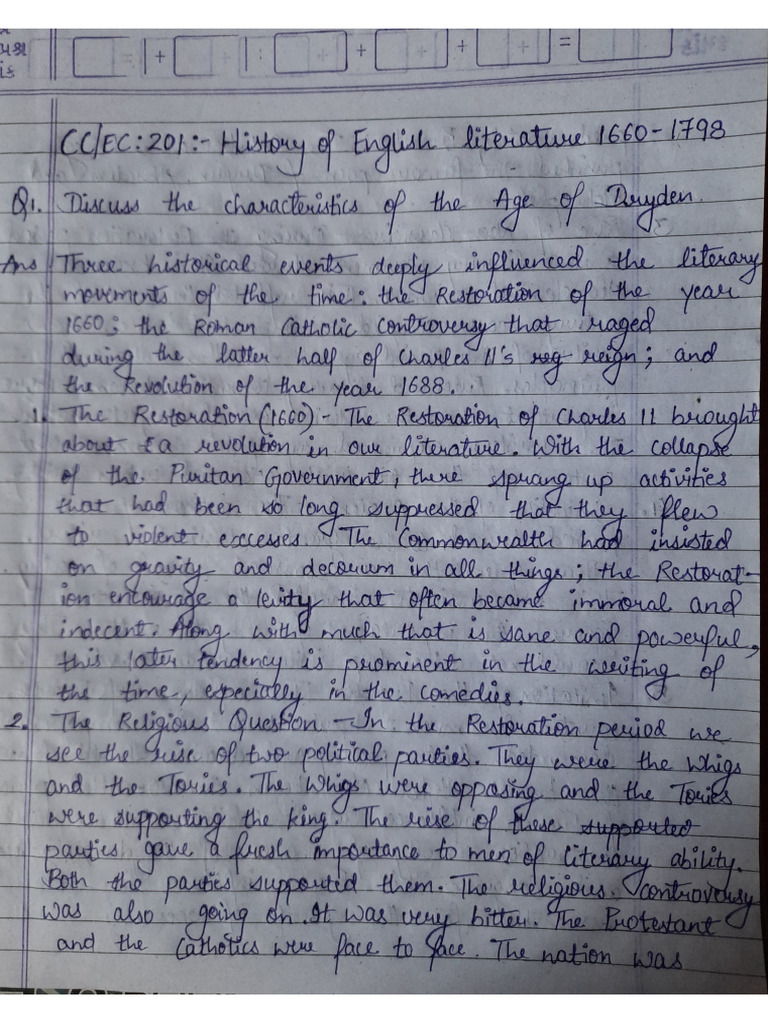 + : + + =
CC/EC:201:- History of English literature 1660-1798
Q1. Discuss the characteristics of the Age of Dryden.
Ans Three historical events deeply influenced the literary
movements of the time: the Restoration of the year
1660; the Roman Catholic controversy that raged
during the latter half of Charles II's reg reign; and
the Revolution of the year 1688.
1. The Restoration (1660) - The Restoration of Charles II brought
about a revolution in our literature. With the collapse
of the Puritan Government, there sprang up activities
that had been so long suppressed that they flew
to violent excesses. The Commonwealth had insisted
on gravity and decorum in all things; the Restorat-
ion encourage a levity that often became immoral and
indecent. Along with much that is sane and powerful,
this later tendency is prominent in the writing of
the time, especially in the comedies.
2. The Religious Question - In the Restoration period we
see the rise of two political parties. They were the Whigs
and the Tories. The Whigs were opposing and the Tories
were supporting the king. The rise of these supported
parties gave a fresh importance to men of literary ability.
Both the parties supported them. The religious controversy
was also going on. It was very bitter. The Protestant
and the Catholics were face to face. The nation was